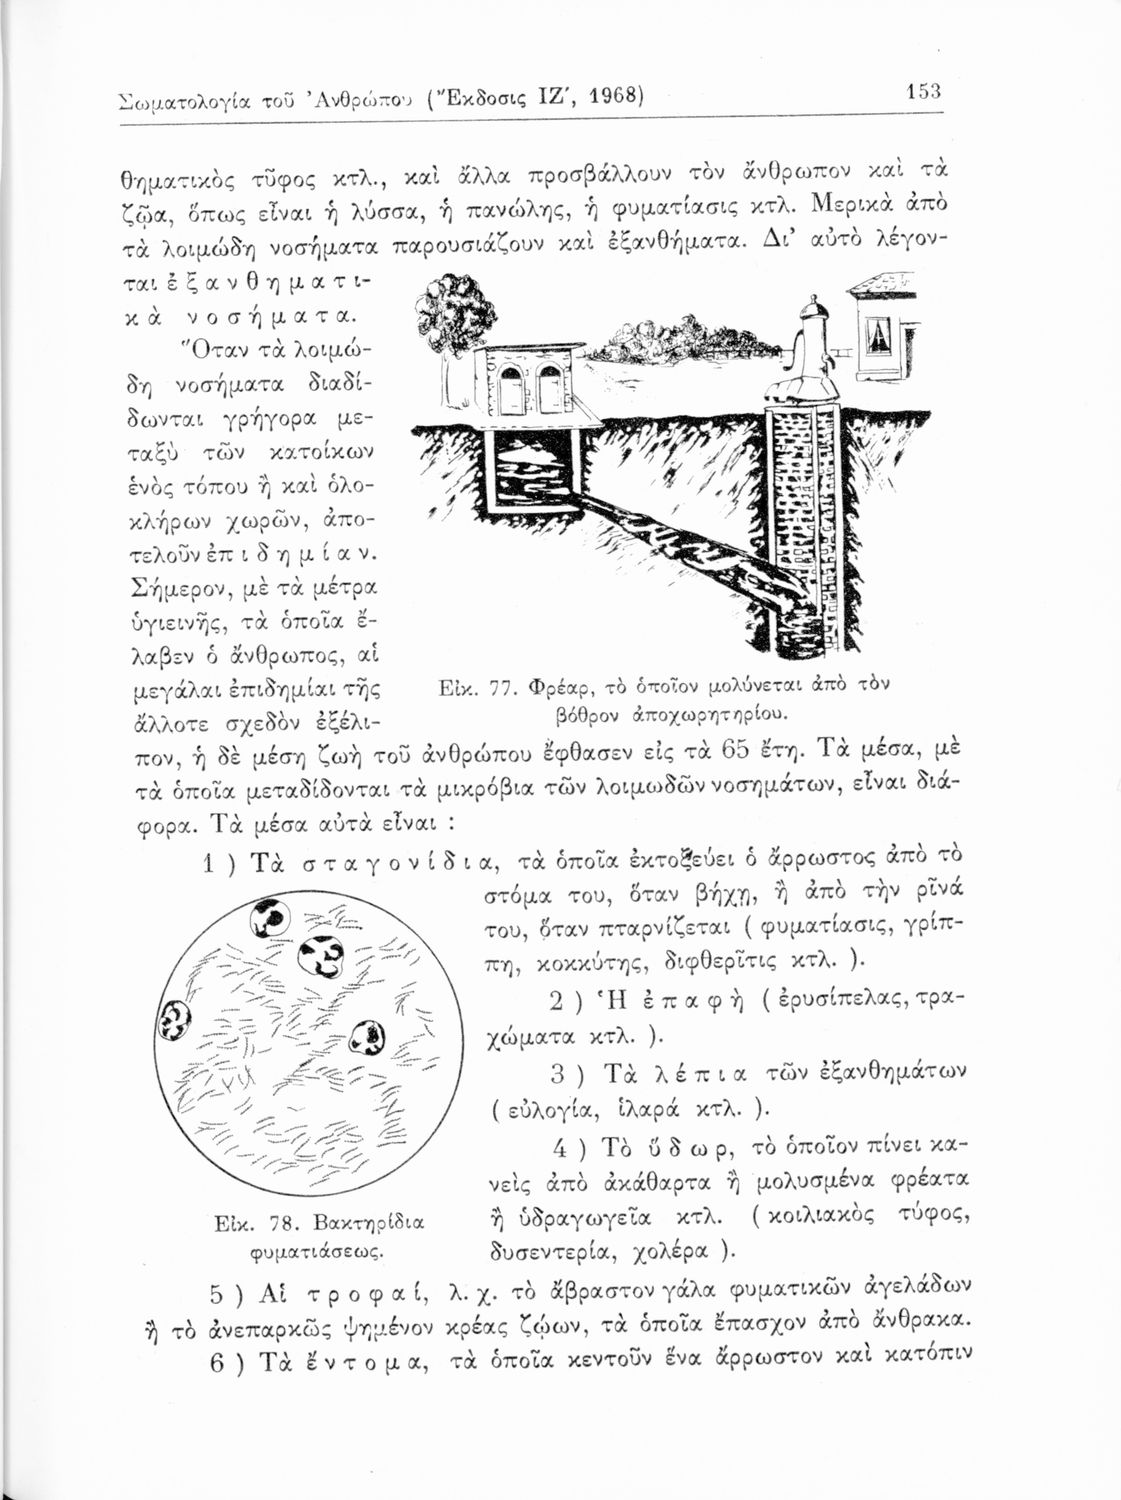 Σωματολογία τοῦ Ἀνθρώπου (Ἔκδοσις ΙΖ', 1968) 153
θηματικὸς τῦφος κτλ., καὶ ἄλλα προσβάλλουν τὸν ἄνθρωπον καὶ τὰ
ζῷα, ὅπως εἶναι ἡ λύσσα, ἡ πανώλης, ἡ φυματίασις κτλ. Μερικὰ ἀπὸ
τὰ λοιμώδη νοσήματα παρουσιάζουν καὶ ἐξανθήματα. Δι' αὐτὸ λέγον-
ται ἐξανθηματι-
κὰ νοσήματα.
Ὅταν τὰ λοιμώ-
δη νοσήματα διαδί-
δωνται γρήγορα με-
ταξὺ τῶν κατοίκων
ἑνὸς τόπου ἢ καὶ ὁλο-
κλήρων χωρῶν, ἀπο-
τελοῦν ἐπιδημίαν.
Σήμερον, μὲ τὰ μέτρα
ὑγιεινῆς, τὰ ὁποῖα ἔ-
λαβεν ὁ ἄνθρωπος, αἱ
μεγάλαι ἐπιδημίαι τῆς
ἄλλοτε σχεδὸν ἐξέλι-
Εἰκ. 77. Φρέαρ, τὸ ὁποῖον μολύνεται ἀπὸ τὸν
βόθρον ἀποχωρητηρίου.
πον, ἡ δὲ μέση ζωὴ τοῦ ἀνθρώπου ἔφθασεν εἰς τὰ 65 ἔτη. Τὰ μέσα, μὲ
τὰ ὁποῖα μεταδίδονται τὰ μικρόβια τῶν λοιμωδῶν νοσημάτων, εἶναι διά-
φορα. Τὰ μέσα αὐτὰ εἶναι :
1 ) Τὰ σταγονίδια, τὰ ὁποῖα ἐκτοξεύει ὁ ἄρρωστος ἀπὸ τὸ
στόμα του, ὅταν βήχῃ, ἢ ἀπὸ τὴν ρῖνά
του, ὅταν πταρνίζεται ( φυματίασις, γρίπ-
πη, κοκκύτης, διφθερῖτις κτλ. ).
2 ) Ἡ ἐπαφὴ ( ἐρυσίπελας, τρα-
χώματα κτλ. ).
3 ) Τὰ λέπια τῶν ἐξανθημάτων
( εὐλογία, ἱλαρά κτλ. ).
4 ) Τὸ ὕδωρ, τὸ ὁποῖον πίνει κα-
νεὶς ἀπὸ ἀκάθαρτα ἢ μολυσμένα φρέατα
ἢ ὑδραγωγεῖα κτλ. ( κοιλιακὸς τύφος,
δυσεντερία, χολέρα ).
Εἰκ. 78. Βακτηρίδια
φυματιάσεως.
5 ) Αἱ τροφαί, λ. χ. τὸ ἄβραστον γάλα φυματικῶν ἀγελάδων
ἢ τὸ ἀνεπαρκῶς ψημένον κρέας ζῴων, τὰ ὁποῖα ἔπασχον ἀπὸ ἄνθρακα.
6 ) Τὰ ἔντομα, τὰ ὁποῖα κεντοῦν ἕνα ἄρρωστον καὶ κατόπιν